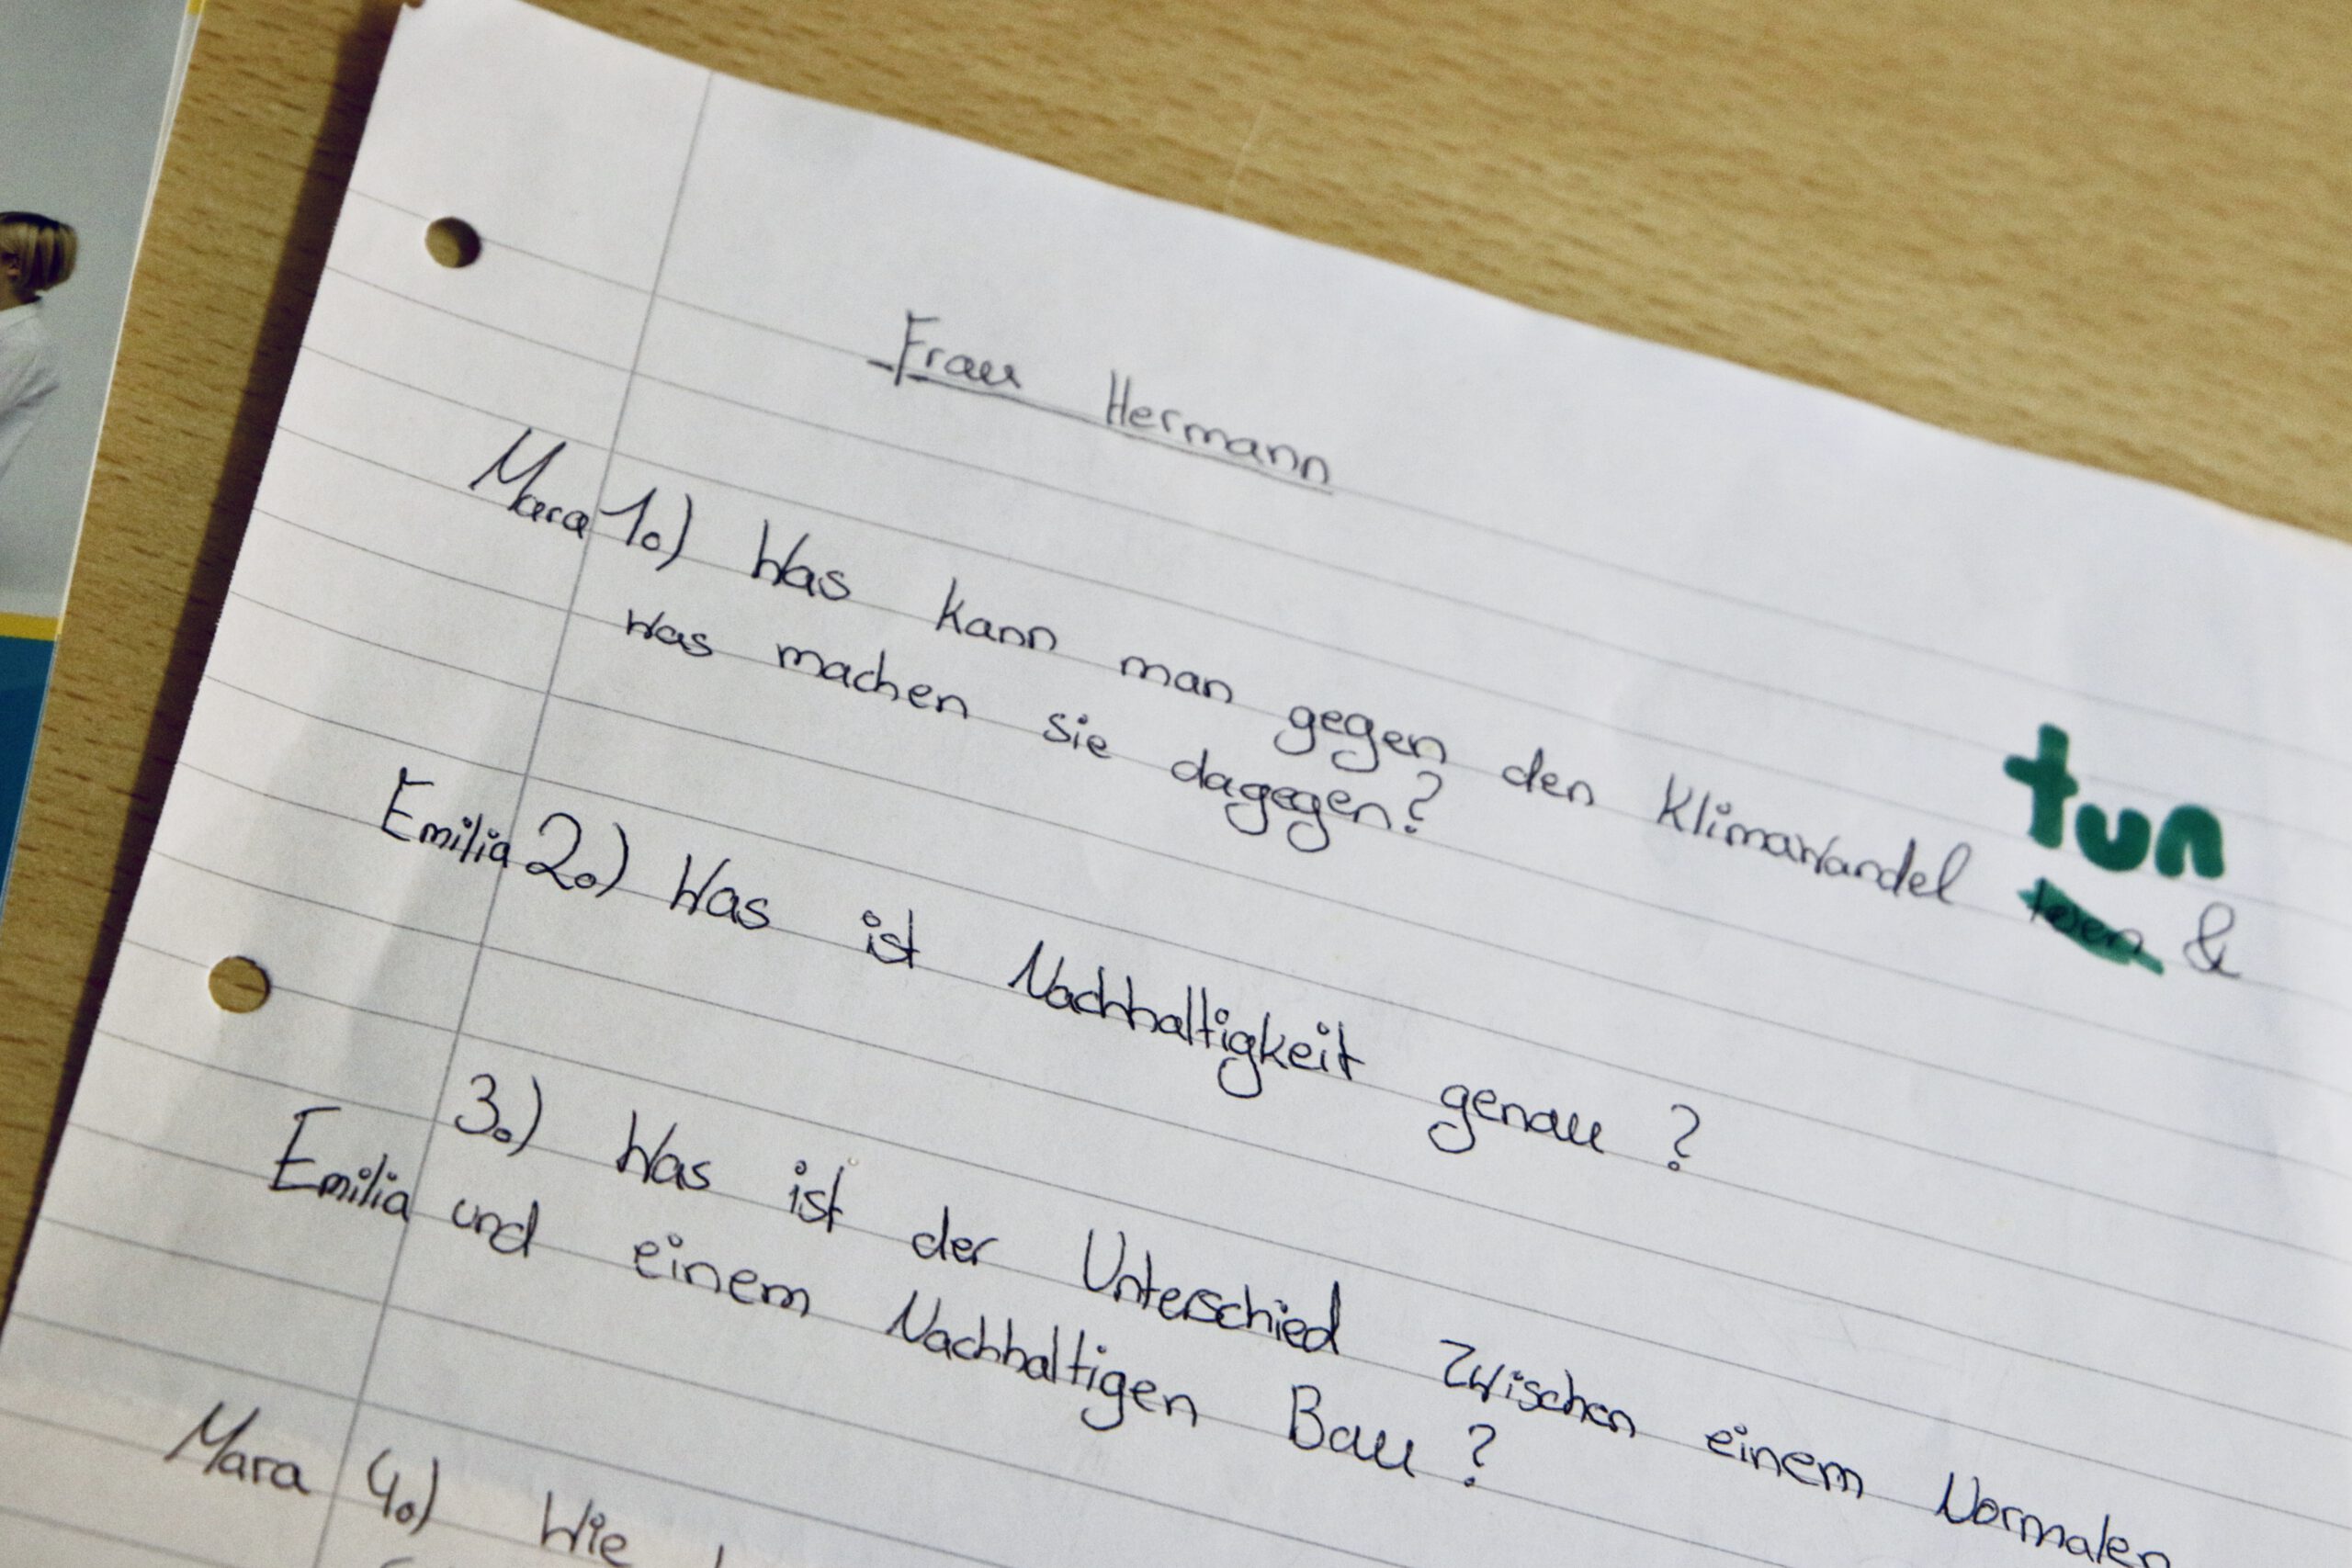 Frau Hermann
Mara 1.) Was kann man gegen den Klimawandel tun &
was machen sie dagegen?
Emilia 2.) Was ist Nachhaltigkeit genau?
3.) Was ist der Unterschied zwischen einem Normalen
Emilia und einem Nachhaltigen Bau?
Mara 4.) Wie